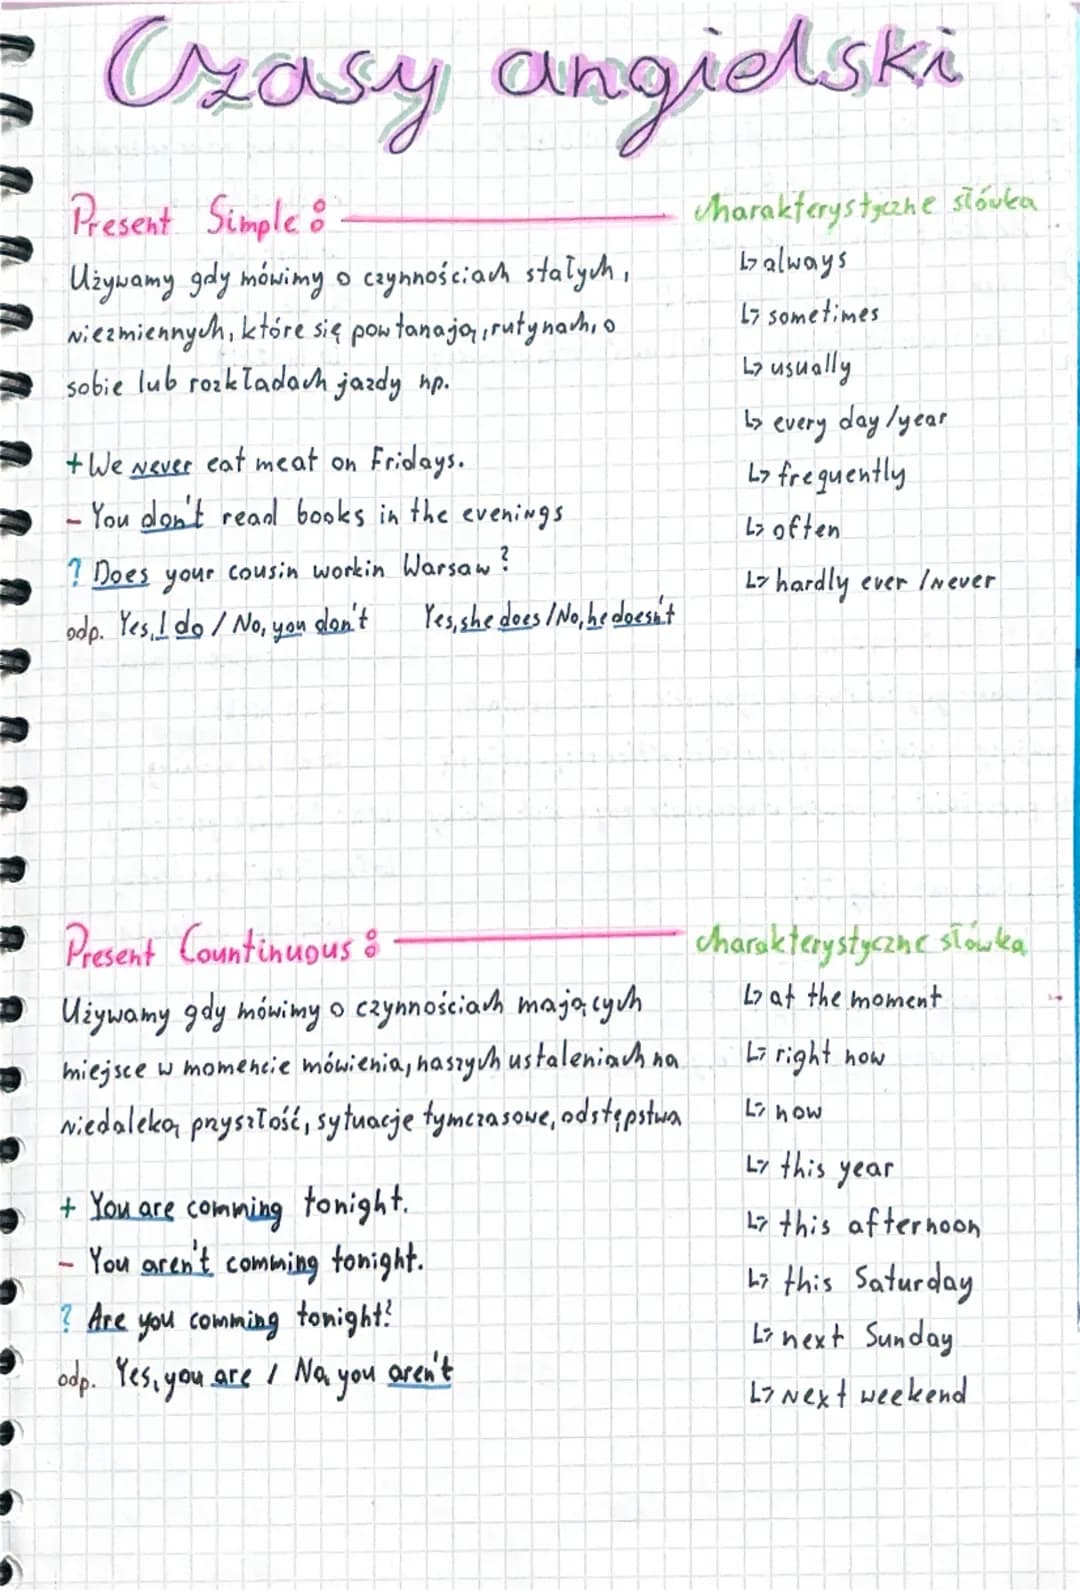 Czasy angielski
Present Simple:
charakterystyczne słówka
Używamy gdy mówimy o czynnościach stałych,
niezmiennych, które się powtarzają, rutynach, o
sobie lub rozkładach jazdy np.
+ We never eat meat on Fridays.
- You don't read books in the evenings
? Does your cousin workin Warsaw?
odp. Yes, I do / No, you don't Yes, she does / No, he doesn't
↳ always
↳ sometimes
↳ usually
↳ every day / year
↳ frequently
↳ often
↳ hardly ever / never
Present Countinuous:
charakterystyczne słówka
Używamy gdy mówimy o czynnościach mających
miejsce w momencie mówienia, naszych ustaleniach na
niedaleką przyszłość, sytuacje tymczasowe, odstępstwa
+ You are comming tonight.
- You aren't comming tonight.
? Are you comming tonight?
odp. Yes, you are / No, you aren't
↳ at the moment
↳ right now
↳ now
↳ this year
↳ this afternoon
↳ this Saturday
↳ next Sunday
↳ next weekend